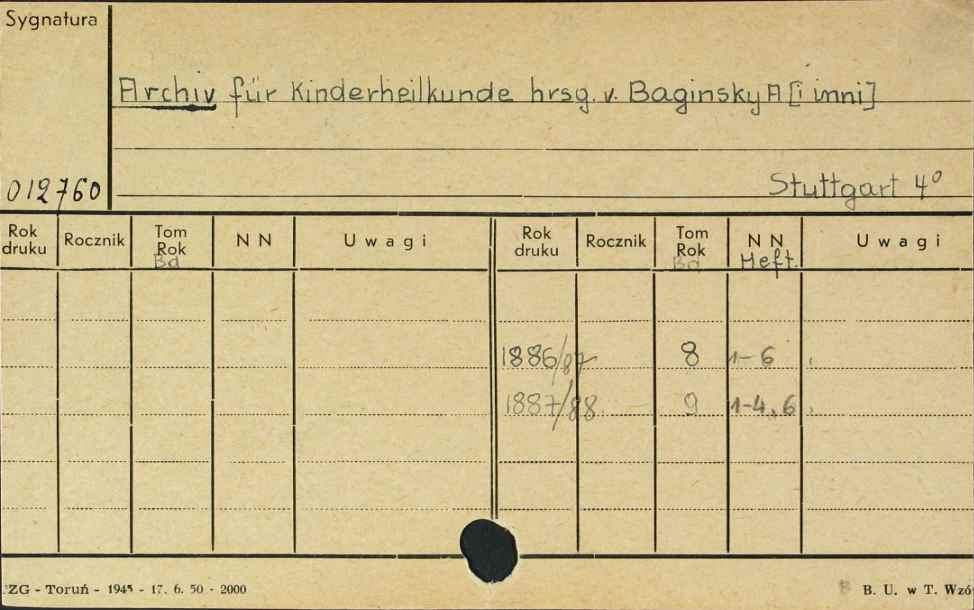 Sygnatura
Archiv für Kinderheilkunde hrsg. v. Baginsky A [i inni]
012760
Stuttgart 4°
Rok druku Rocznik Tom Rok Bd N N Uwagi Rok druku Rocznik Tom Rok Bd N N Heft. Uwagi
1886/87 8 1-6
1887/88 9 1-4, 6
ZG - Toruń - 1945 - 17. 6. 50 - 2000
B. U. w T. Wzó